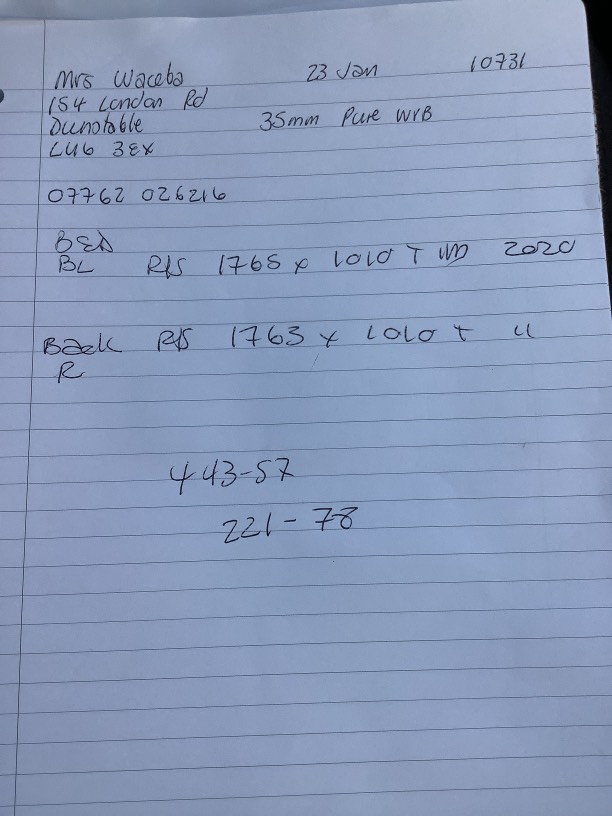 Mrs Waceba 23 Jan 10731
154 London Rd
Dunstable 35mm Pure WVB
LU6 3EX
07762 026216
BED
BL R/S 1765 x 1010 T 2020
Back R/S 1763 x 1010 T "
R
443-57
221-78